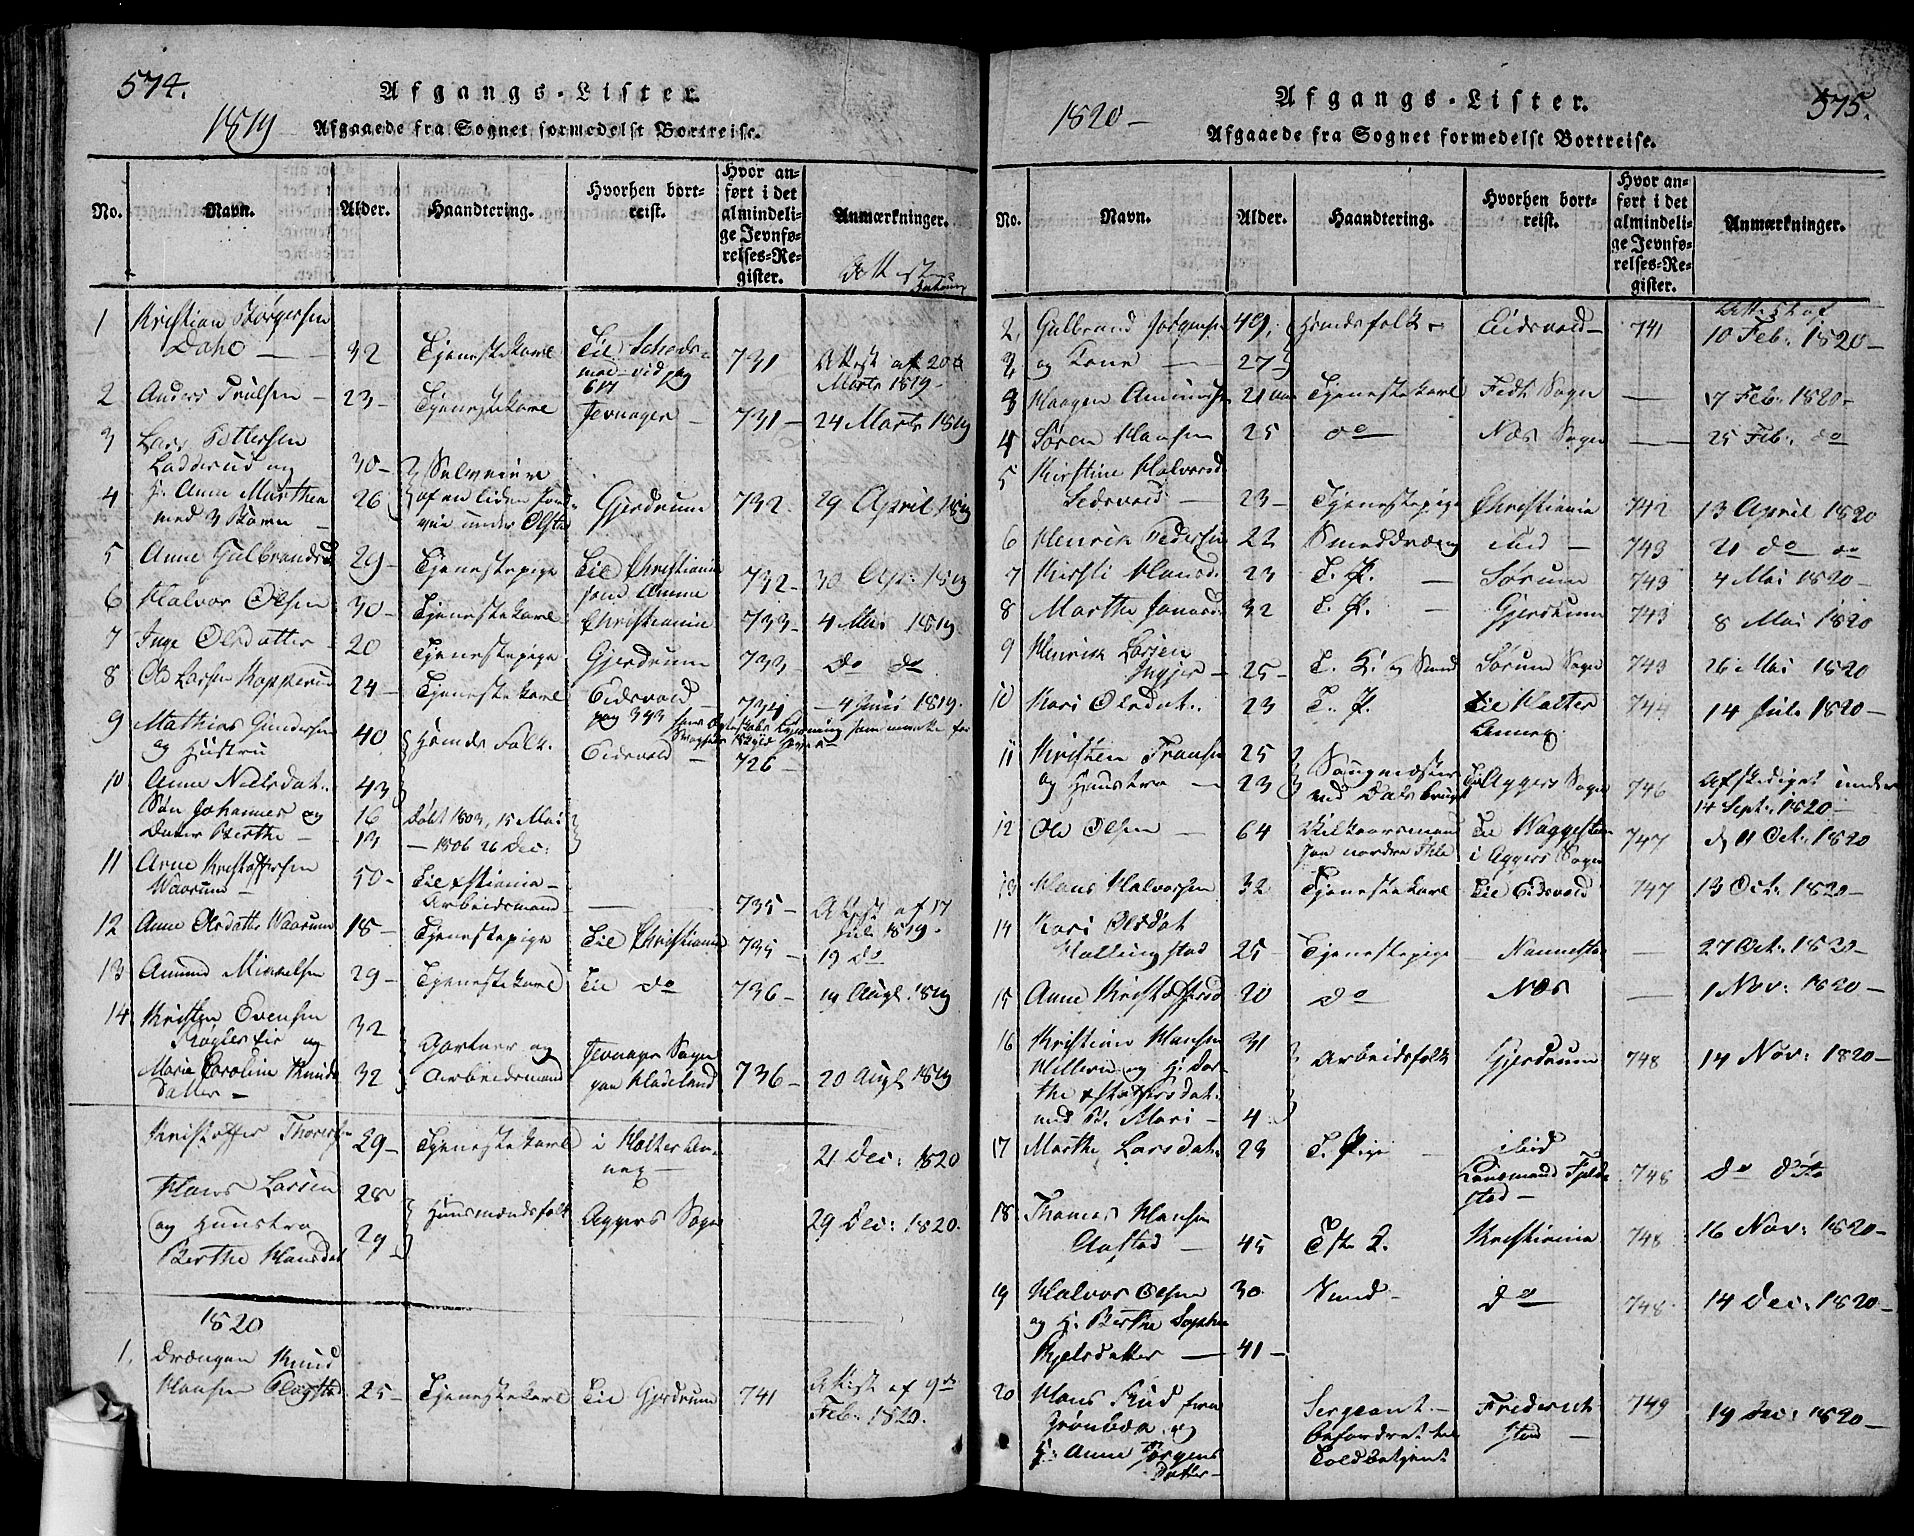 574.
Afgangs-Lister.
1819
Afgaaede fra Sognet formedelst Bortreise.
No. Navn. Alder. Haandtering. Hvorhen bortreist. Hvor anført i det almindelige Jevnførelses-Register. Anmærkninger.
1 Kristian Børgersen
Dahl 32 Tjenestekarl Til 731 Attest af 20
Marts 1819
2 Anders Truelsen 23 Tjenestekarl Jevnager 731 24 Marts 1819
3 Lars Pettersen
Ladderud og 30 Selveiere
4 H. Anne Marthea 26 af en liden Gjerdrum 732 29 April 1819
med 3 Børn under
5 Anne Gulbrandsd 29 Tjenestepige Til Christiania 732 30 Apr: 1819
som Amme
6 Halvor Olsen 30 Tjenestekarl Christiania 733 4 Mai 1819
7 Inge Olsdatter 20 Tjenestepige Gjerdrum 733 do do
8 Ole Larsen 24 Tjenestekarl Eidsvold 734 4 Juni 1819
pag 333
9 Mathias Gundersen 40 Huusmds Folk Eidsvold 726
og Hustru
10 Anne Nielsdat. 43
Søn Johannes og 16 Født 1803, 15 Mai
Datter Berthe 13 1806 26 Dec:
11 Arne Kristoffersen 50 Til Xstiania
Waarum Arbeidsmand 735 Attest af 17
Juli 1819
12 Anne Olsdatter Waarum 18 Tjenestepige Til Christiania 735 19 do
13 Amund Mikkelsen 29 Tjenestekarl Til do 736 19 Augl. 1819
14 Kristen Evensen 32
og Gartner og Jevnager Sogn
Marie Caroline Knuds 32 Arbeidsmand paa Hadeland 736 20 Augl 1819
Datter
Kristoffer Thoresen 29 Tjenestekarl i Holter An-
nex 21 Dec: 1820
Hans Larsen 28
og Huustru Huusmandsfolk Aggers Sogn 29 Dec: 1820
Berthe Hansdat 29
1820
1. Drængen Knud
Hansen 25 Tjenestekarl Til Gjerdrum 741 Attest af 9de
Feb: 1820.
575.
Afgangs-Lister.
1820
Afgaaede fra Sognet formedelst Bortreise.
No. Navn. Alder. Haandtering. Hvorhen bortreist. Hvor anført i det almindelige Jevnførelses-Register. Anmærkninger.
Attest af
2 Gulbrand Jørgensen 49 Huusmdsfolk Eidsvold 741 10 Feb: 1820
og Kone 27
3 Haagen Amunds 21 Tjenestekarl Fedt Sogn 17 Feb: 1820
4 Søren Hansen 25 do Næs Sogn 25 Feb: do
5 Kirstine Halvorsd
Eidsvold 23 Tjenestepige Christiania 742 13 April 1820
6 Henrik Pedersen 22 Smeddræng 743 21 do do
7 Kirsti Hansd. 23 T. P. Sørum 743 4 Mai 1820
8 Marthe Jonasd. 32 T. P. Gjerdrum 743 8 Mai 1820
9 Henrik Larsen
25 T. K. og Smed Sørum Sogn 743 26 Mai 1820
10 Kari Olsdat. 23 T. P. Til Holter
Annex 744 14 Juli 1820
11 Kristen Fransen 25 Saugmester Til Aggers Sogn 746 Afskediget under
og Huustru 23 ved Dals bruget 14 Sept: 1820
12 Ole Olsen 64 Vilkaarsmand Til
paa nordre i Aggers Sogn 747 11 Oct: 1820
13 Hans Halvorsen 32 Tjenestekarl Til Eidsvold 747 13 Oct: 1820
14 Kari Olsdat
Hallingstad 25 Tjenestepige Nannestad 27 Oct: 1820
15 Anne Kristoffersd 20 do Næs 1 Nov: 1820
16 Kristian Hansen 31
og H. Dor- Arbeidsfolk Gjerdrum 748 14 Nov: 1820
the Xstoffersdat.
med B. Mari 4
17 Marthe Larsdat. 23 T. Pige
748 do dito
18 Thomas Hansen
Aastad 45 Kristiania 748 16 Nov: 1820
19 Halvor Olsen 30 Smed do 748 14 Dec: 1820
og H. Berthe Sophie
Kjelsdatter 41
20 Hans Ruud fra Sergeant Frederik- 749 19 Dec: 1820
og befordret til stad
H. Anne Jørgens Toldbetjent
Datter